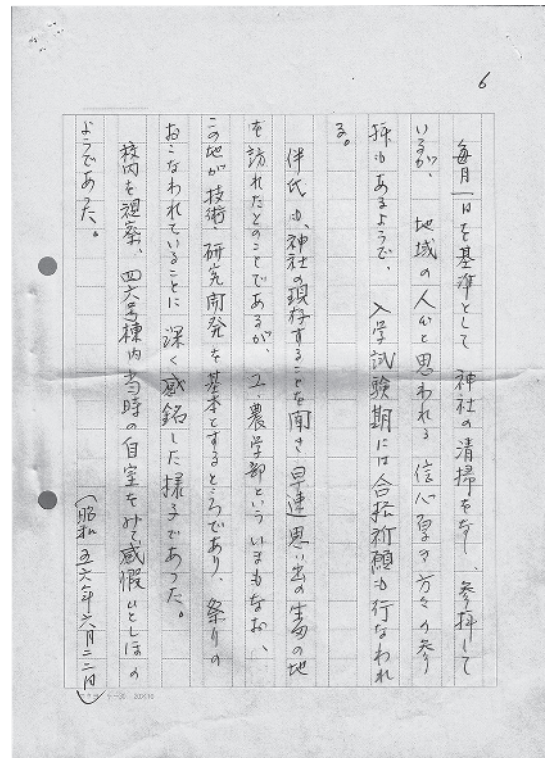 6
毎月一日を基準として 神社の清掃をなし、参拝して
いるが、 地域の人々と思われる 信心厚き方々の参
拝もあるようで、 入学試験期には合格祈願も行なわれ
る。
伴氏も、神社の現存することを聞き 早速 思い出の 生田の地
を訪れたとのことであるが、工・農学部といういまもなお、
この地が技術・研究開発を基本とするところであり、祭りの
おこなわれていることに 深く感銘した様子であった。
校内を視察、四六号棟内 当時の自室をみて感慨ひとしほの
ようであった。
(昭和 五六年六月二二日)